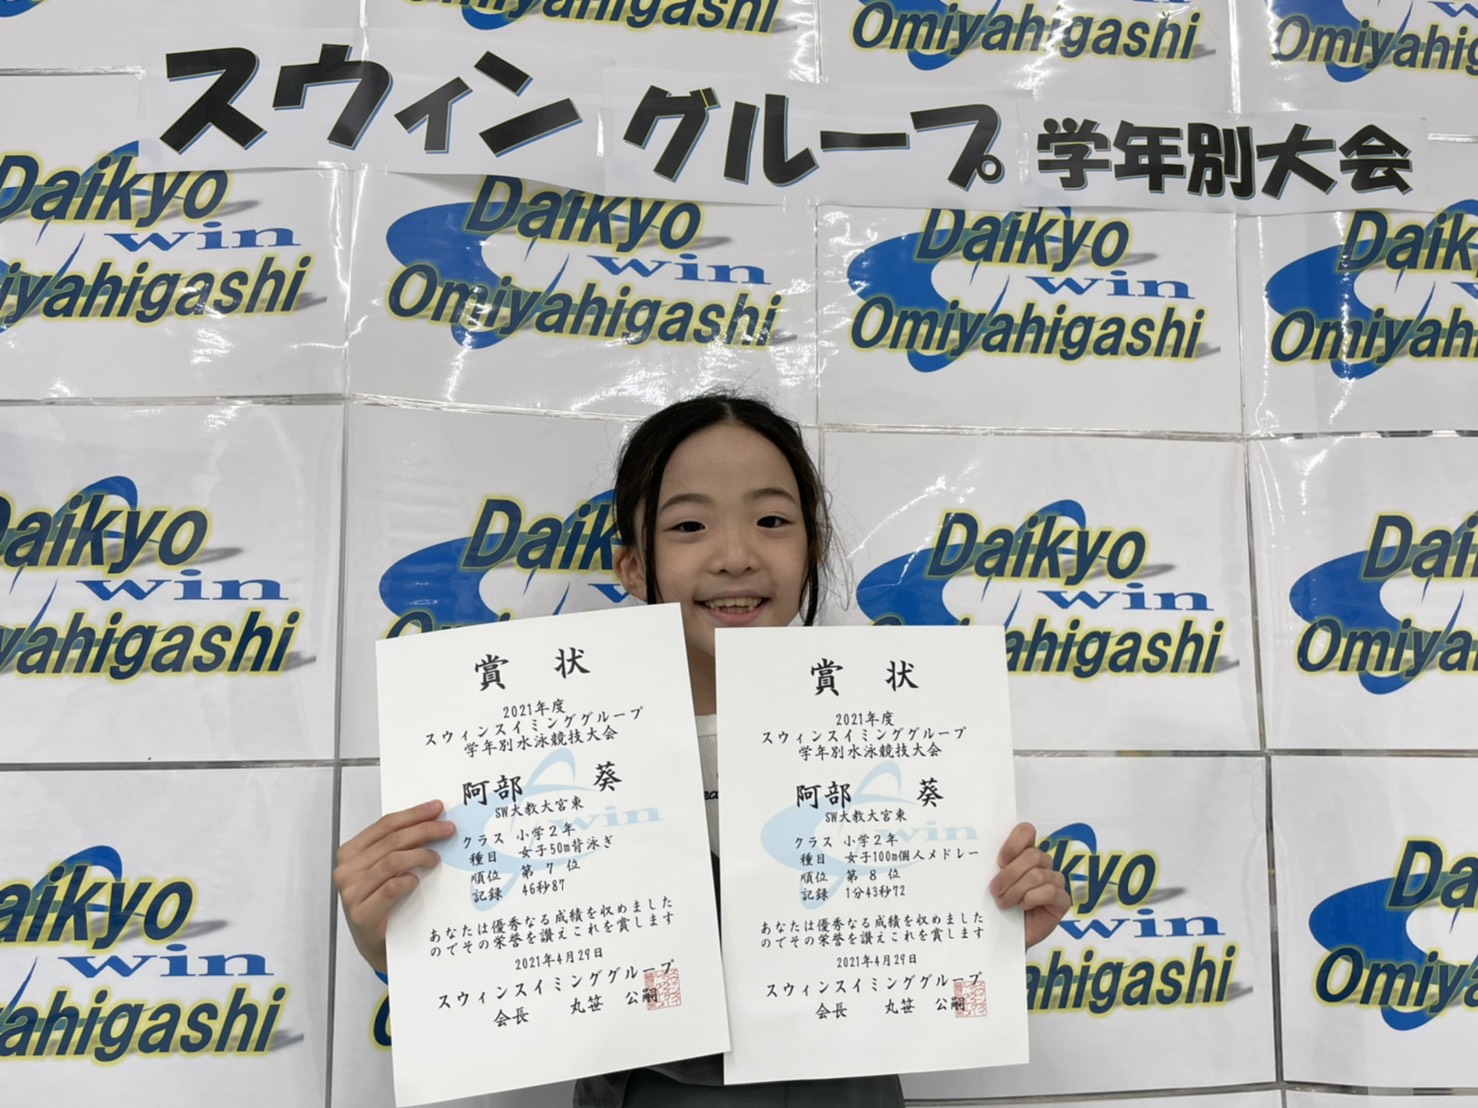 スウィン グループ 学年別大会
Omiyahigashi
Omiyahigashi
Daikyo
win
Omiyahigashi
Daikyo
win
Omiyahigashi
Daikyo
win
Omiyahigashi
Daikyo
win
Omiyahigashi
Daikyo
win
Daikyo
win
Omiyahigashi
賞 状
2021年度
スウィンスイミンググループ
学年別水泳競技大会
阿部 葵
SW大教大宮東
クラス 小学2年
種目 女子50m背泳ぎ
順位 第 7 位
記録 46秒87
あなたは優秀なる成績を収めました
のでその栄誉を讃えこれを賞します
2021年4月29日
スウィンスイミンググループ
会長 丸笹 公嗣
賞 状
2021年度
スウィンスイミンググループ
学年別水泳競技大会
阿部 葵
SW大教大宮東
クラス 小学2年
種目 女子100m個人メドレー
順位 第 8 位
記録 1分43秒72
あなたは優秀なる成績を収めました
のでその栄誉を讃えこれを賞します
2021年4月29日
スウィンスイミンググループ
会長 丸笹 公嗣
Daikyo
win
Daikyo
win